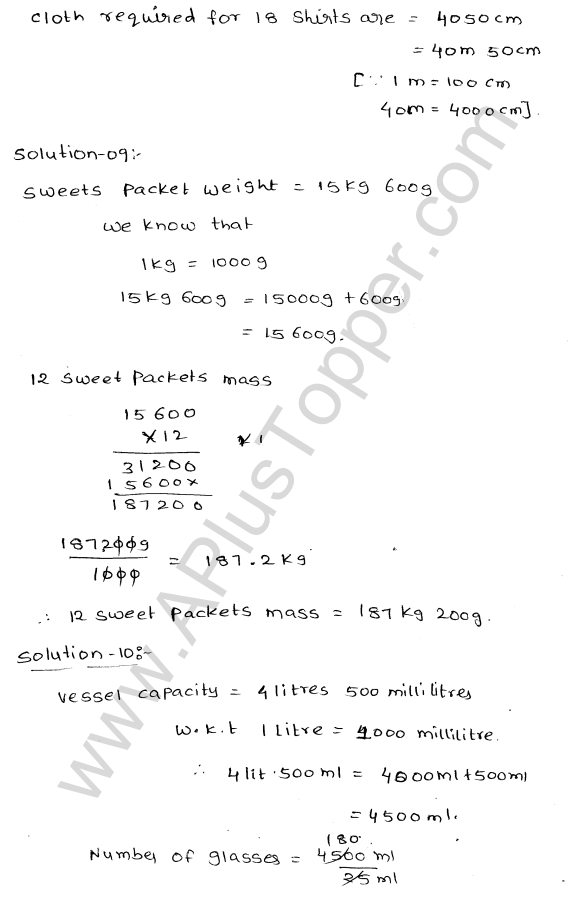 cloth required for 18 shirts are = 4050cm
= 40m 50cm
[∵ 1m = 100 cm
40m = 4000cm].
Solution-09:-
Sweets packet weight = 15kg 600g
we know that
1kg = 1000g
15kg 600g = 15000g + 600g
= 15600g.
12 sweet packets mass
15600
×12 ×1
31200
15600×
187200
187200g / 1000 = 187.2kg
∴ 12 sweet packets mass = 187kg 200g.
Solution-10:-
vessel capacity = 4 litres 500 millilitres
w.k.t 1 Litre = 1000 millilitre.
∴ 4 lit. 500 ml = 4000ml + 500ml
= 4500ml.
180
Number of glasses = 4500 ml / 25 ml
www.APlusTopper.com